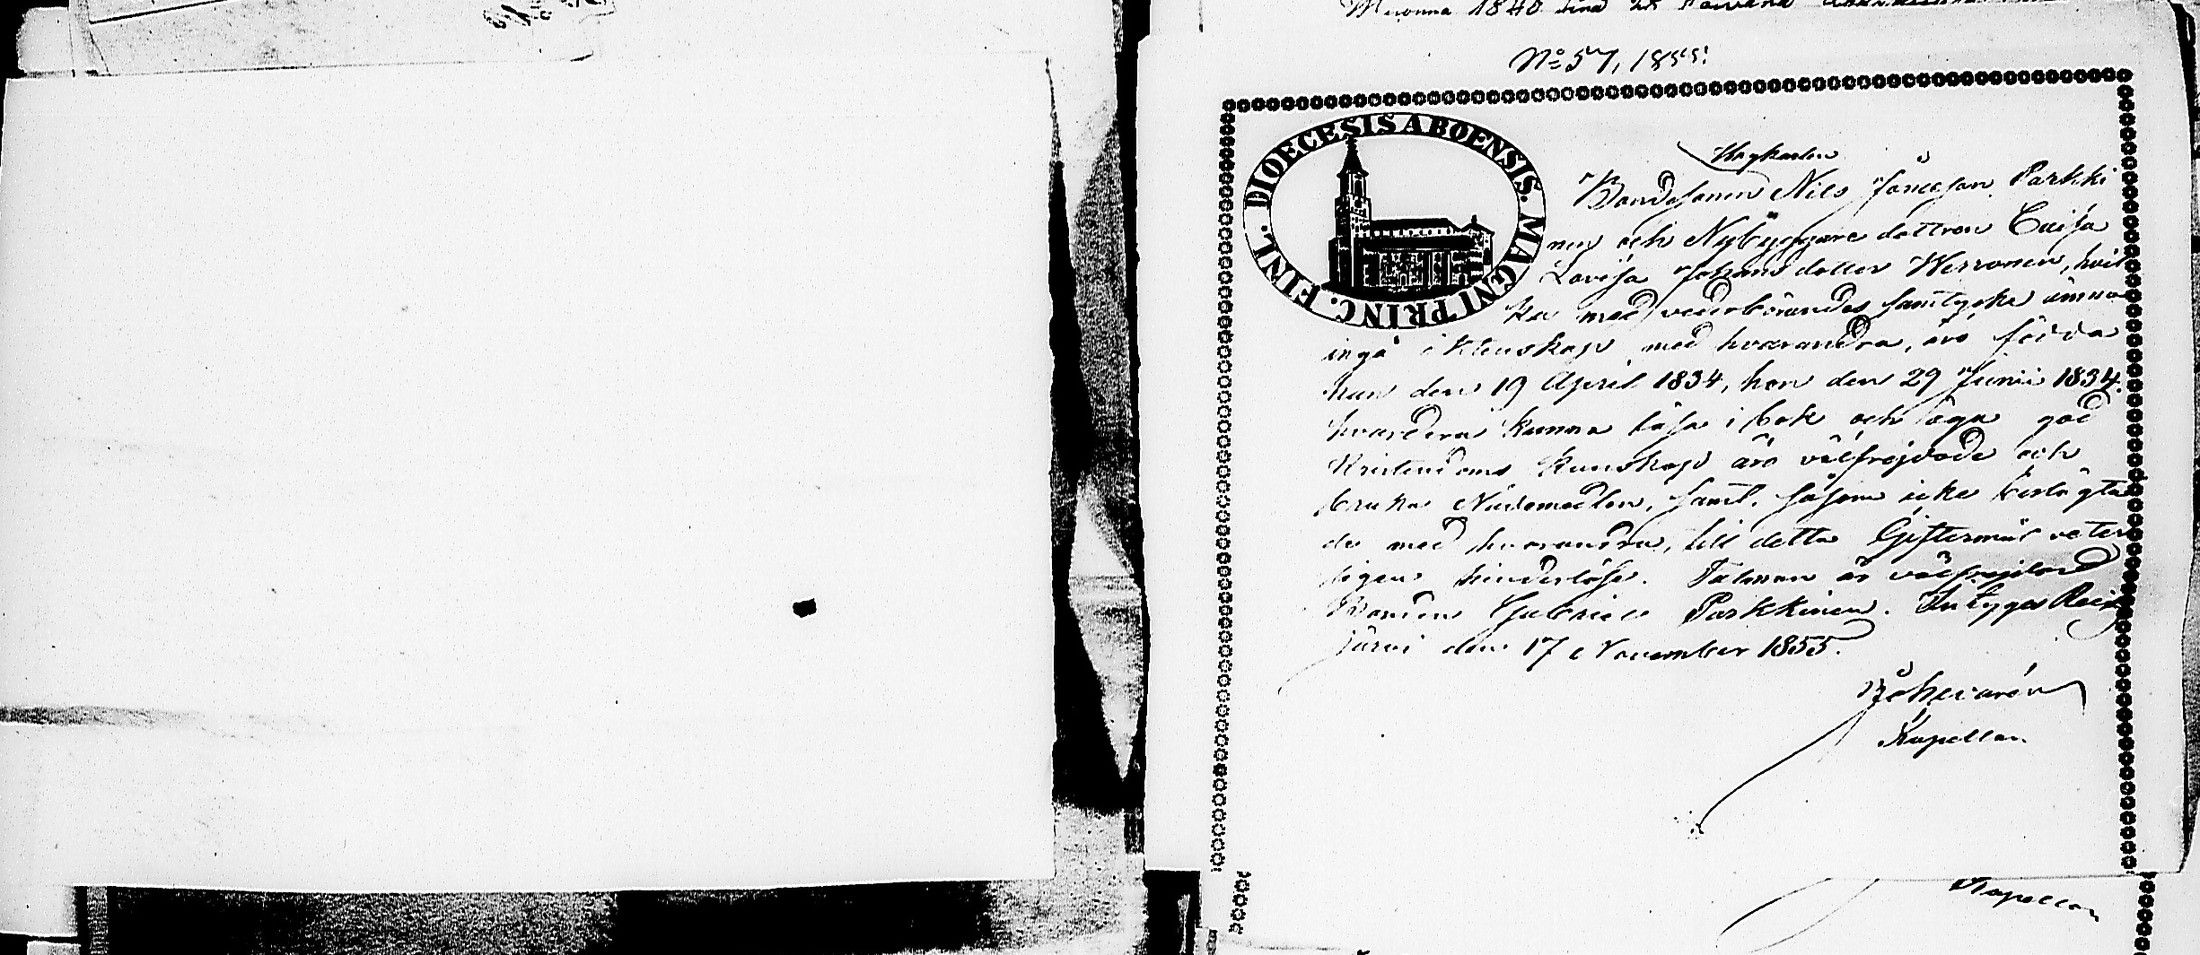 No 57, 1855.
DIOECESIS ABOENSIS. MAGNI PRINC. FINL.
Ungkarlen
Bondesonen Nils Jönsson Parkki
nen och Nybyggare dottren Caisa
Lovisa Johans dotter Werronen, hvil
ka med vederbörandes samtycke ämna
ingå äktenskap med hvarandra, äro födda
han den 19 April 1834, hon den 29 Junii 1834.
hvardera kunna läsa i bok och äga god
Kristendoms kunskap äro välfrejdade och
bruka Nådemedlen, samt, såsom icke beslägta
de med hvarandra, till detta Giftermål veter
ligen hinderlöse. Talman är välfrejdade
Bonden Gabriel Parkkinen. Intygas Reis
järvi den 17 November 1855.
Kapellan.
Kapellan